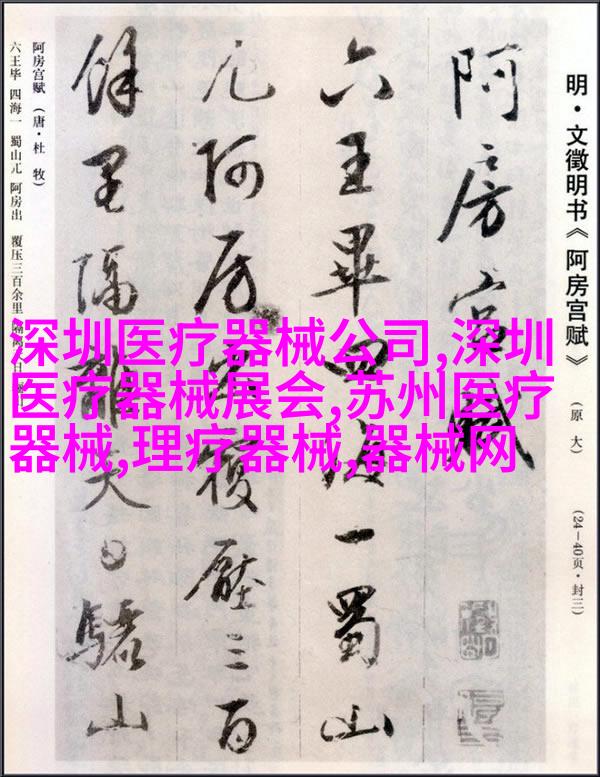 明·文徵明书《阿房宫赋》
(原 大)
(24—40页·封三)
阿房宫赋
六王畢四海一蜀山
兀阿房出覆壓三百
餘里隔離天日驪山
阿房宫赋 (唐·杜 牧)
六王毕 四海一 蜀山兀 阿房出 覆压三百余里
深圳医疗器械公司,深圳
医疗器械展会,苏州医疗
器械,理疗器械,器械网